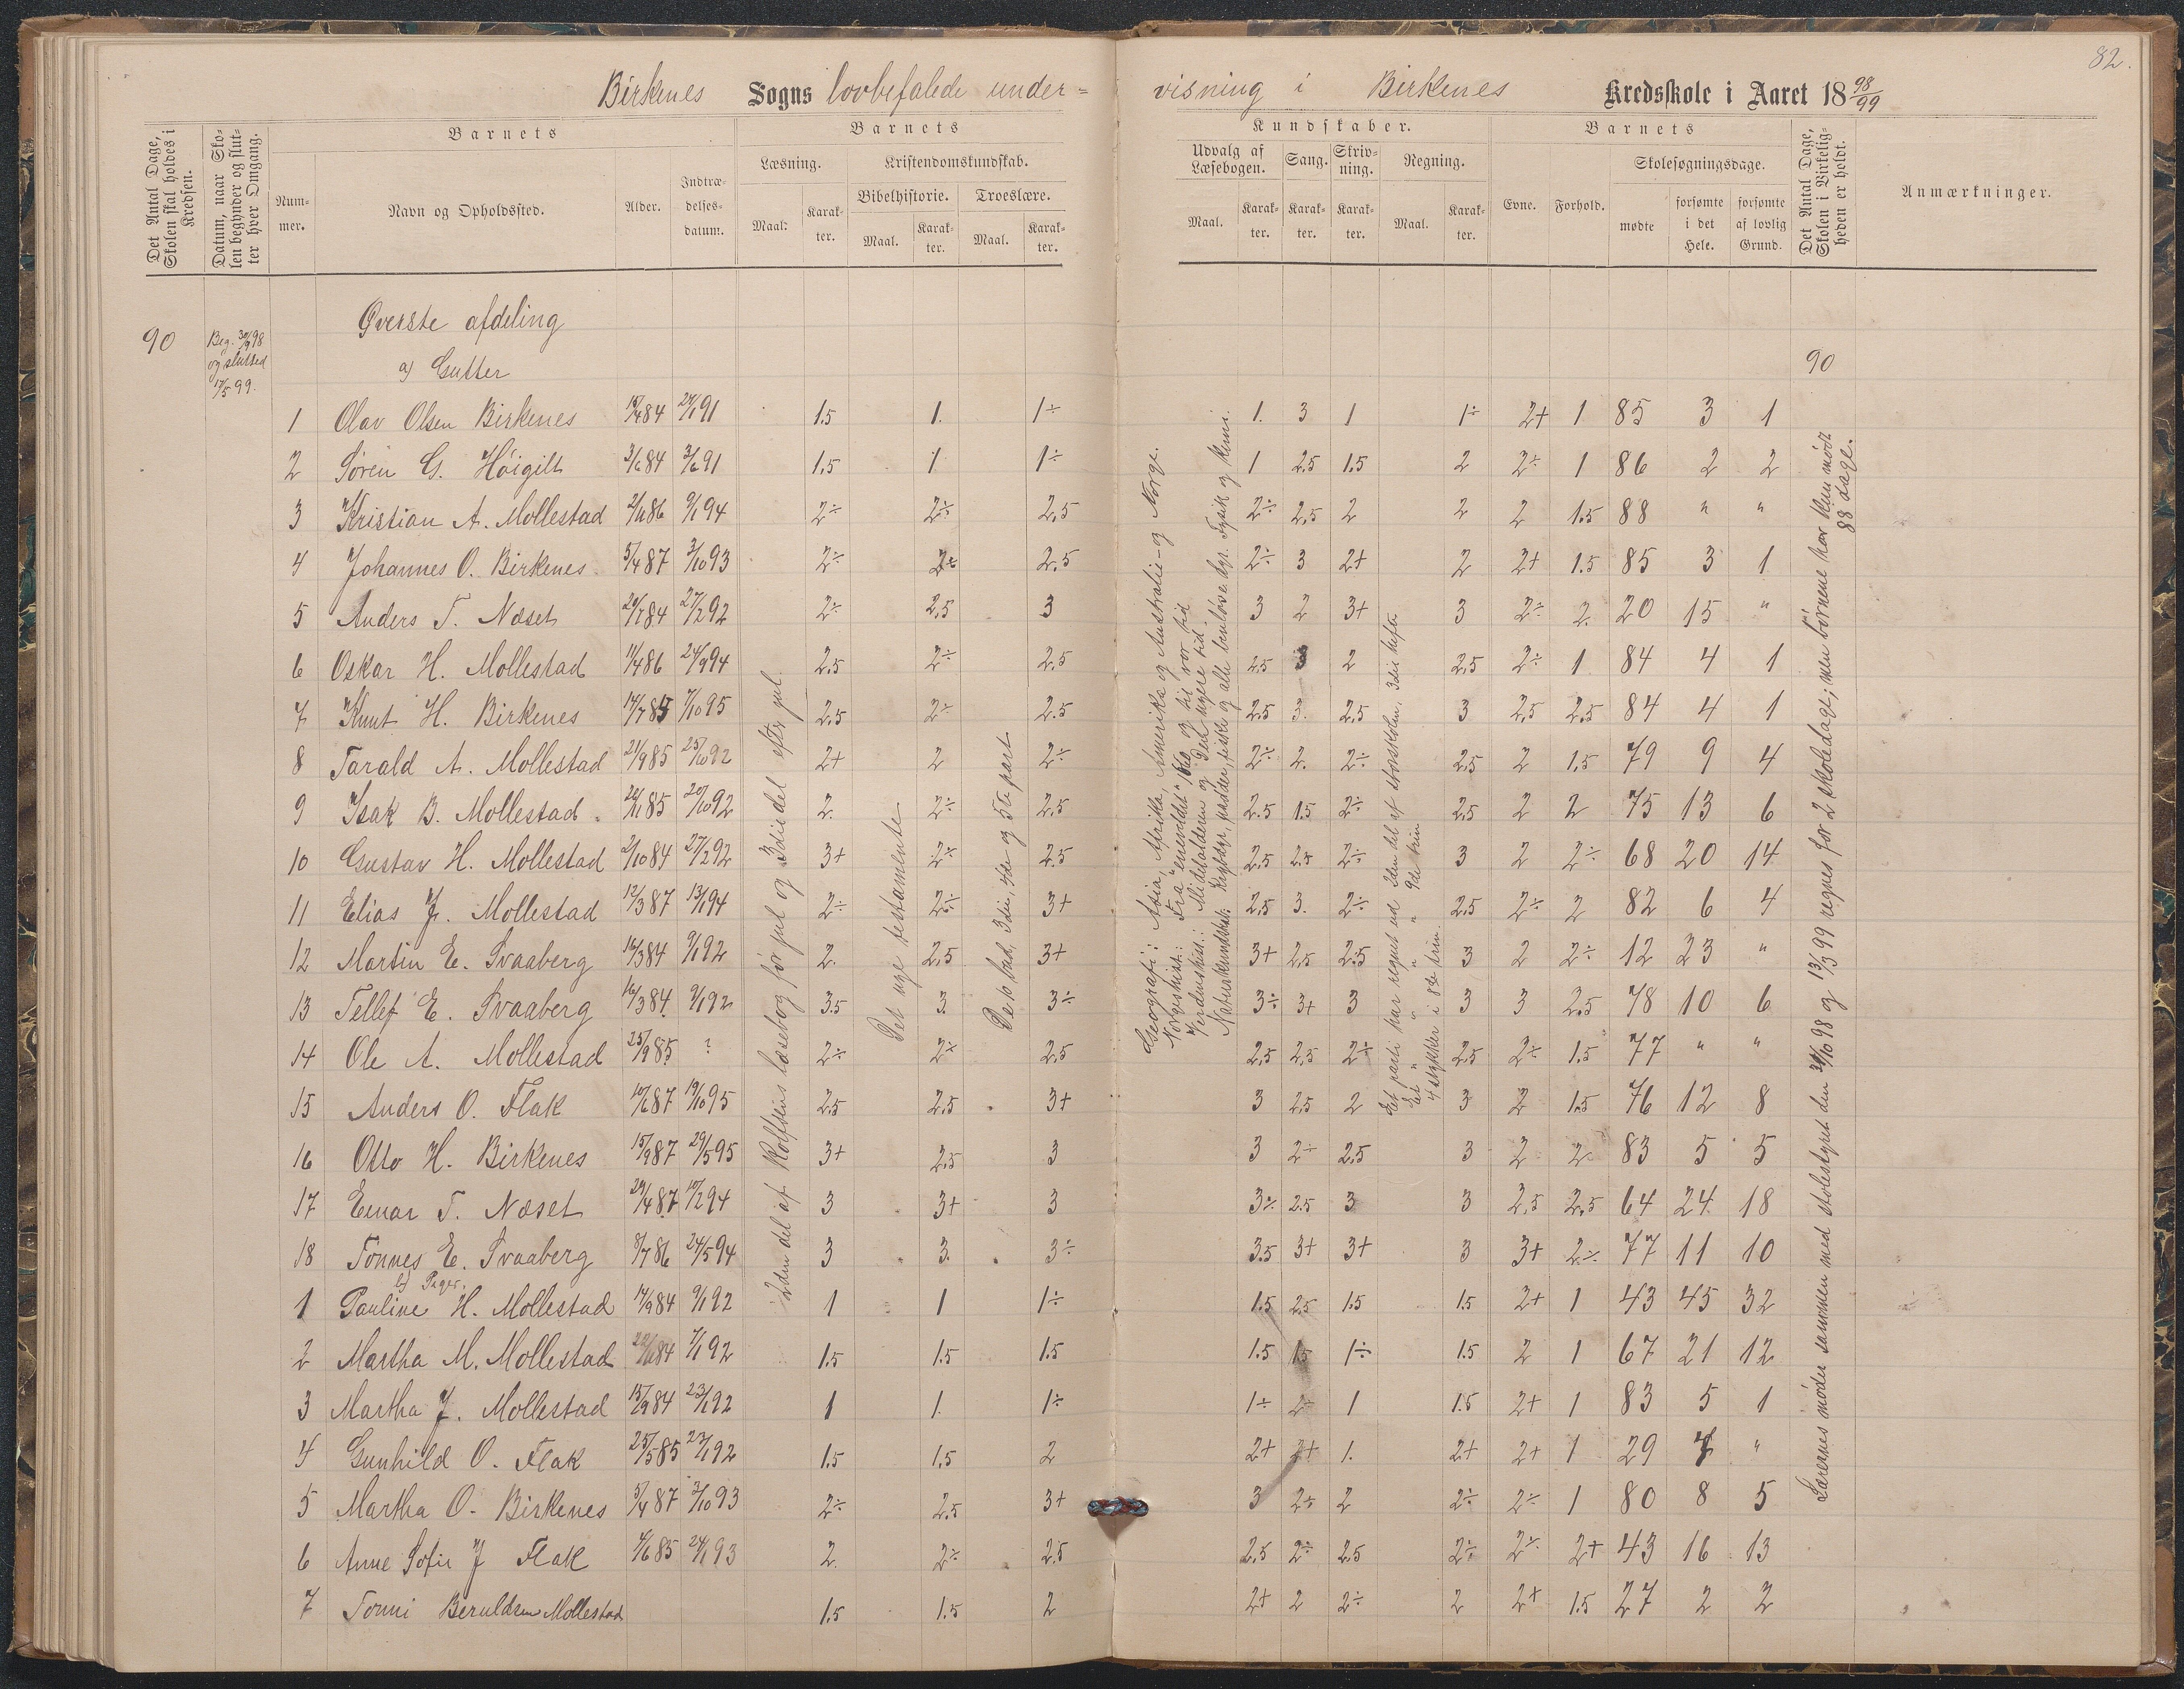 82.
Birkenes Sogns lovbefalede under-visning i Birkenes Kredsskole i Aaret 18 98/99
Det Antal Dage, Skolen skal holdes i Kredsen.
Datum, naar Skolen begynder og slutter hver Omgang.
Barnets
Nummer.
Navn og Opholdssted.
Alder.
Indtrædelsesdatum.
Barnets
Læsning.
Maal.
Karakter.
Kristendomskundskab.
Bibelhistorie.
Maal.
Karakter.
Troeslære.
Maal.
Karakter.
Kundskaber.
Udvalg af Læsebogen.
Maal.
Karakter.
Sang.
Karakter.
Skrivning.
Karakter.
Regning.
Maal.
Karakter.
Barnets
Evne.
Forhold.
Skolesøgningsdage.
mødte
forsømte i det Hele.
forsømte af lovlig Grund.
Det Antal Dage, Skolen i Virkeligheden er holdt.
Anmærkninger.
90
Beg. 30/9 98
og slutted
17/5 99.
Øverste afdeling
a) Gutter
90
1 Olav Olsen Birkenes 84 91 1.5 1. 1÷ 1. 3 1 1÷ 2+ 1 85 3 1
2 Søren G. Höigilt 3/6 84 3/6 91 1,5 1 1÷ 1 2,5 1,5 2 2÷ 1 86 2 2
3 Kristian A. Mollestad 2/11 86 9/1 94 2÷ 2÷ 2,5 2÷ 2,5 2 2 2 1.5 88 " "
4 Johannes O. Birkenes 5/4 87 3/10 93 2÷ 2÷ 2,5 2÷ 3 2+ 2 2+ 1.5 85 3 1
5 Anders T. Næset 84 27/2 92 2÷ 2,5 3 3 2 3+ 3 2÷ 2. 20 15 "
6 Oskar H. Mollestad 11/4 86 24/9 94 2,5 2÷ 2,5 2,5 3 2 2,5 2÷ 1 84 4 1
7 Knut H. Birkenes 14/7 85 7/10 95 2,5 2÷ 2.5 2,5 3. 2,5 3 2,5 2,5 84 4 1
8 Tarald A. Mollestad 21/9 85 25/10 92 2+ 2 2÷ 2÷ 2. 2÷ 2,5 2 1.5 79 9 4
9 Isak B. Mollestad 85 20/10 92 2. 2÷ 2,5 2.5 1.5 2÷ 2,5 2 2 75 13 6
10 Gustav H. Mollestad 2/10 84 27/2 92 3+ 2÷ 2.5 2,5 2.5 2÷ 3 2 2÷ 68 20 14
11 Elias J. Mollestad 12/3 87 13/1 94 2÷ 2÷ 3+ 2,5 3. 2÷ 2,5 2÷ 2 82 6 4
12 Martin E. Svaaberg 16/3 84 9/1 92 2. 2,5 3+ 3+ 2,5 2.5 3 2 2÷ 12 23 "
13 Tellef E. Svaaberg 16/3 84 9/1 92 3.5 3. 3÷ 3÷ 3+ 3 3 3 2.5 78 10 6
14 Ole A. Mollestad 25/9 85 ? 2÷ 2÷ 2,5 2,5 2,5 2÷ 2,5 2÷ 1.5 77 " "
15 Anders O. Flak 10/6 87 19/10 95 2,5 2,5 3+ 3 2,5 2 3 2 1.5 76 12 8
16 Otto H. Birkenes 15/9 87 29/5 95 3+ 2,5 3 3 2÷ 2,5 3 2 2 83 5 5
17 Einar T. Næset 29/4 87 10/2 94 3 3+ 3 3÷ 2.5 3 3 2,5 2,5 64 24 18
18 Tönnes E. Svaaberg 8/7 86 24/5 94 3 3. 3÷ 3.5 3+ 3+ 3 3+ 2÷ 77 11 10
b) Piger.
1 Pauline H. Mollestad 17/9 84 9/1 92 1 1 1÷ 1.5 2,5 1.5 1.5 2+ 1 43 45 32
2 Martha M. Mollestad 84 7/1 92 1.5 1.5 1.5 1.5 1.5 1÷ 1.5 2 1 67 21 12
3 Martha J. Mollestad 15/9 84 23/1 92 1 1. 1÷ 1÷ 2÷ 1 1.5 2+ 1 83 5 1
4 Gunhild O. Flak 25/5 85 23/1 92 1.5 1,5 2 2+ 2+ 1. 2+ 2+ 1 29 "
5 Martha O. Birkenes 5/4 87 3/10 93 2÷ 2,5 3+ 3 2÷ 2 2÷ 2÷ 1 80 8 5
6 Anne Sofie J Flak 4/6 85 24/1 93 2. 2÷ 2.5 2,5 2÷ 2,5 2÷ 2÷ 2+ 43 16 13
7 Tomi Beruldsen Mollestad 1.5 1.5 2 2+ 2 2÷ 2 2+ 1.5 27 2 2
2den del af Rolfsens læsebog för jul og 3die del efter jul.
Det nye testamente
De 10 bud, 3die, 4de og 5te part
Geografi: Asia, Afrika, Amerika og Australie og Norge.
Norgeshist.: Fra "eneveldet" og til vor tid
Verdenshist.: Middelalderen og Den nyere tid.
Naturkundskab: Krybdyr, padder, fiske og alle benløse dyr. Fysik og kemi.
Et parti har regnet ud 2den del af storskolen, 3die hefte
Et " " " " 9de trin
4 stykker i 8de trin.
Lærernes møder sammen med skolestyret den 31/10 98 og 13/3 99 regnes for 2 skoledage; men børnene har kun mødt
88 dage.